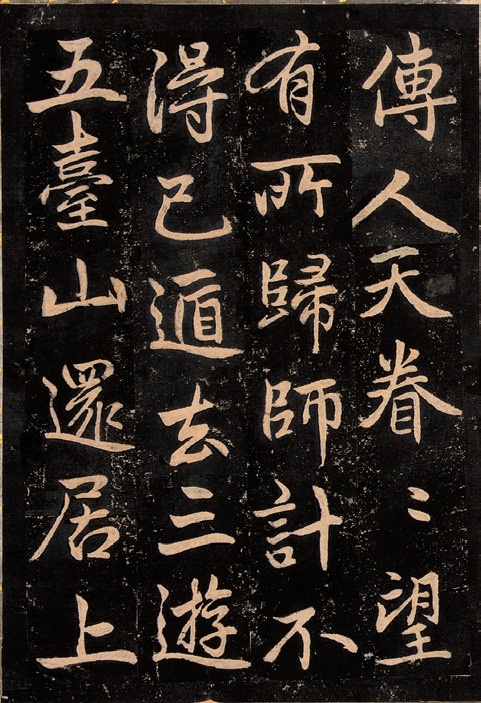 傳人天眷〻望
有所歸師計不
得已遁去三遊
五臺山還居上